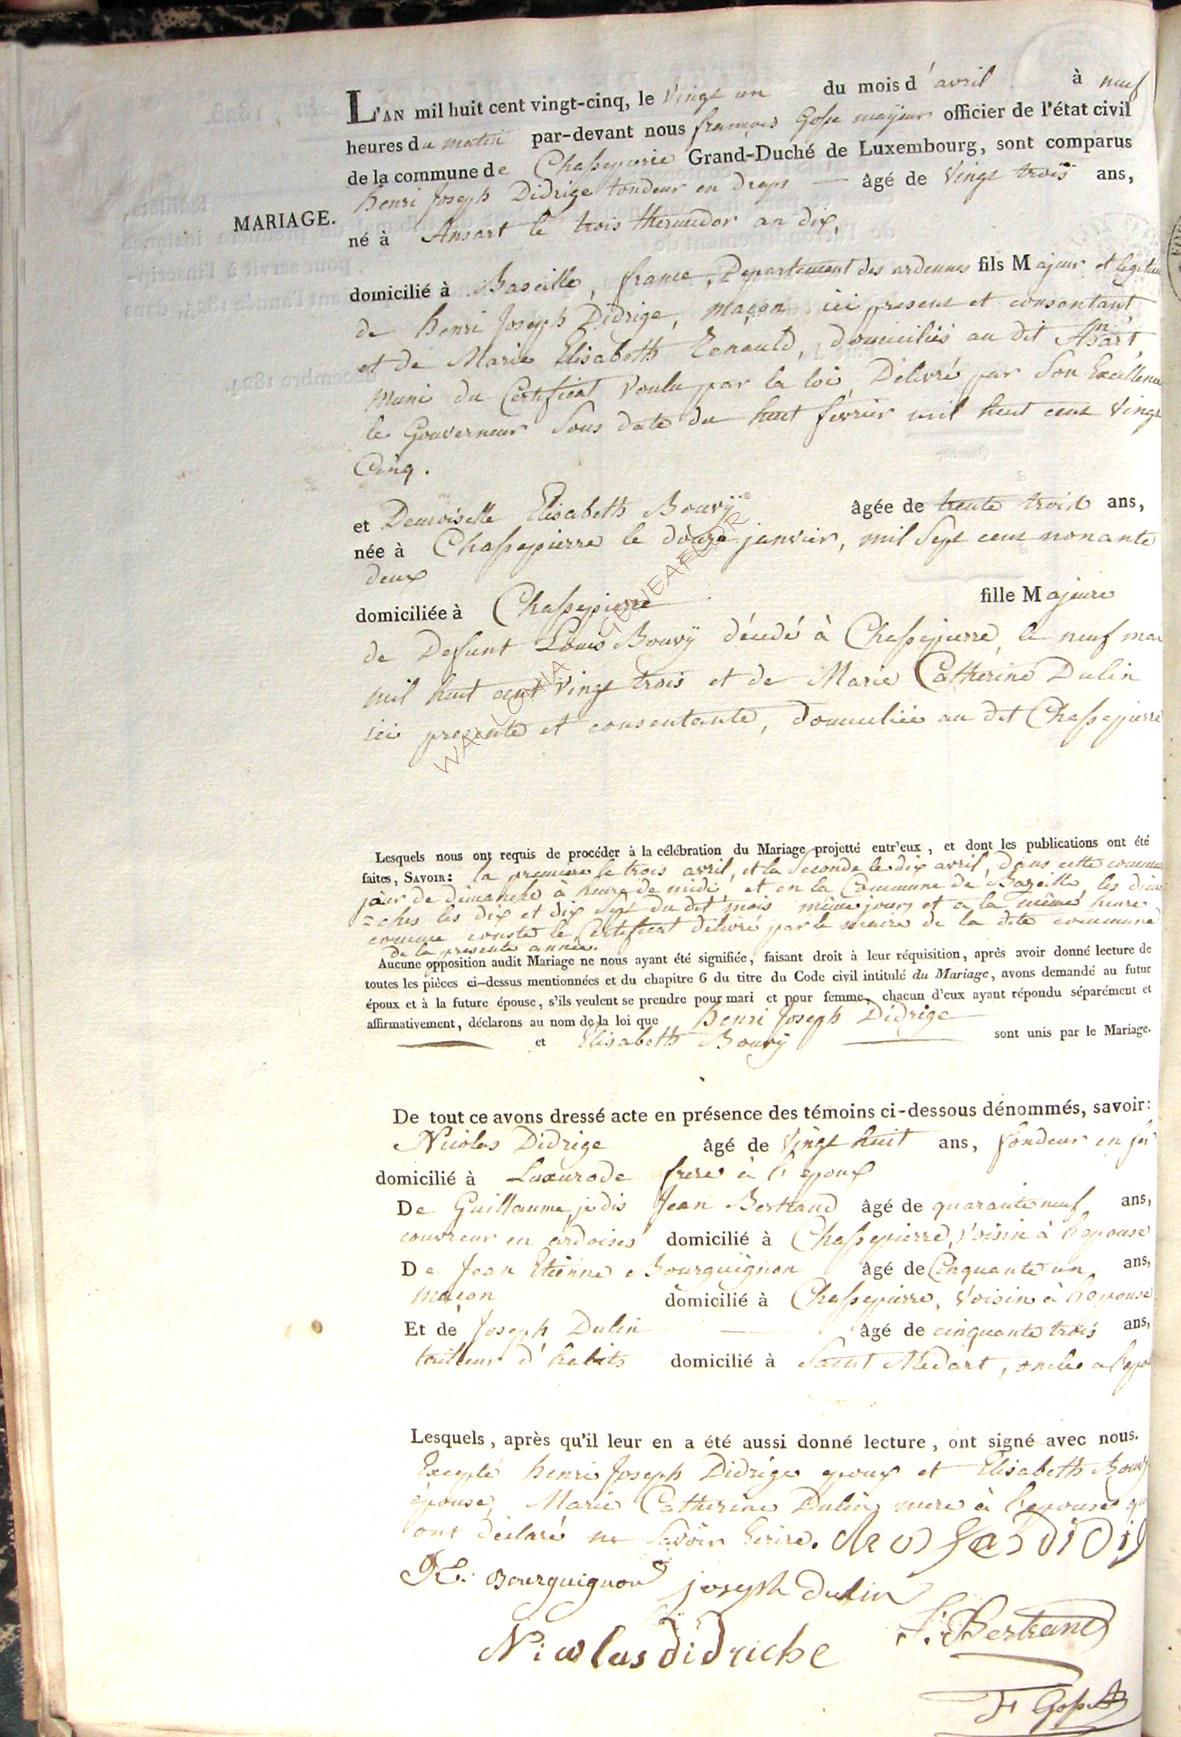 L'AN mil huit cent vingt-cinq, le vingt un du mois d'avril à neuf
heures du matin par-devant nous françois Gosse mayeur officier de l'état civil
de la commune de Chassepierre Grand-Duché de Luxembourg, sont comparus
henri Joseph Didrige tondeur en draps — âgé de Vingt trois ans,
MARIAGE.
né à Ansart le trois thermidor an dix,
domicilié à Bazeille, france, Departement des ardennes fils Majeur et legitime
de henri Joseph Didrige, maçon ici present et consentant,
et de Marie Elisabeth Renauld, domiciliés au dit Ansart
muni du Certificat voulu par la loi, Délivré par Son Excellence
le Gouverneur Sous date du huit fevrier mil huit cent Vingt
Cinq.
et Demoiselle Elisabeth Bouvÿ âgée de trente trois ans,
née à Chassepierre le douze janvier, mil Sept cent nonante
deux
domiciliée à Chassepierre fille Majeure
de Defunt Louis Bouvÿ décédé à Chassepierre, le neuf mai
mil huit cent Vingt trois et de Marie Catherine Dulin
ici presente et consentante, domiciliée au dit Chassepierre
WALLONIA GENEAFLOR ©
Lesquels nous ont requis de procéder à la célébration du Mariage projetté entr'eux, et dont les publications ont été
faites, SAVOIR: la premiere le trois avril, et la Seconde le dix avril, Dans cette commune
jour de dimanche à heure de midi, et en la Commune de Bazeille, les diman
=ches les dix et dix Sept du dit mois même jour et a la même heure
comme conste le Certificat délivré par le maire de la dite commune
de la presente année.
Aucune opposition audit Mariage ne nous ayant été signifiée, faisant droit à leur réquisition, après avoir donné lecture de
toutes les pièces ci-dessus mentionnées et du chapitre 6 du titre du Code civil intitulé du Mariage, avons demandé au futur
époux et à la future épouse, s'ils veulent se prendre pour mari et pour femme, chacun d'eux ayant répondu séparément et
affirmativement, déclarons au nom de la loi que henri Joseph Didrige
et Elisabeth Bouvÿ sont unis par le Mariage.
De tout ce avons dressé acte en présence des témoins ci-dessous dénommés, savoir:
Nicolas Didrige âgé de Vingt huit ans, fondeur en fer
domicilié à frere à l'epoux
De Guillaume jodis Jean Bertrand âgé de quarante neuf ans,
couvreur en ardoises domicilié à Chassepierre, Voisin à l'epouse
De Jean Etienne Bourguignon âgé de Cinquante un ans,
maçon domicilié à Chassepierre, Voisin à l'epouse
Et de Joseph Dulin — âgé de cinquante trois ans,
tailleur d'habits domicilié à Saint Médart, oncle a l'epouse
Lesquels, après qu'il leur en a été aussi donné lecture, ont signé avec nous.
Excepté henri Joseph Didrige epoux et Elisabeth Bouvÿ
épouse, Marie Catherine Dulin mere à l'epouse qui
ont déclaré ne Savoir Ecrire.
Bourguignon joseph dulin
Nicolas didriche J. Bertrand
F Gosse